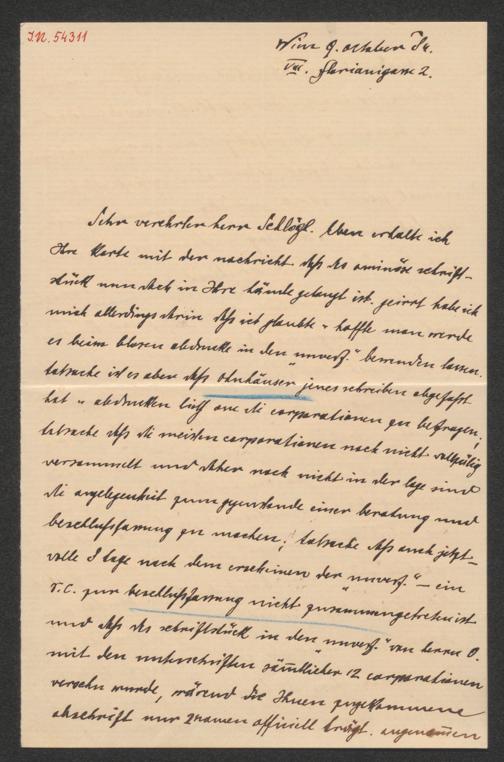 J.N. 54311
Wien 9. october 84.
VIII. florianigasse 2.
Sehr verehrter herr Schlögl. Eben erhalte ich
Ihre karte mit der nachricht daß das ominöse schrift-
stück nun doch in Ihre hände gelangt ist. geirrt habe ich
mich allerdings darin daß ich glaubte u hoffte man werde
es beim blosen abdrucke in den „unverf." bewenden lassen.
tatsache ist es aber daß othnhäuser jenes schreiben abgefasst
hat u abdrucken ließ one die corporationen zu befragen;
tatsache daß die meisten corporationen noch nicht vollzälig
versammelt und daher noch nicht in der lage sind
die angelegenheit zum gegenstande einer beratung und
beschlußfassung zu machen; tatsache daß auch jetzt –
volle 8 tage nach dem erscheinen der „unverf." – ein
D.C. zur beschlußfassung nicht zusammengetreten ist
und daß das schriftstück in den „unverf." von herrn O.
mit den unterschriften sämtlicher 12 corporationen
versehn wurde, wärend die Ihnen zugekommene
abschrift nur 2 namen officiell trägt. angenommen